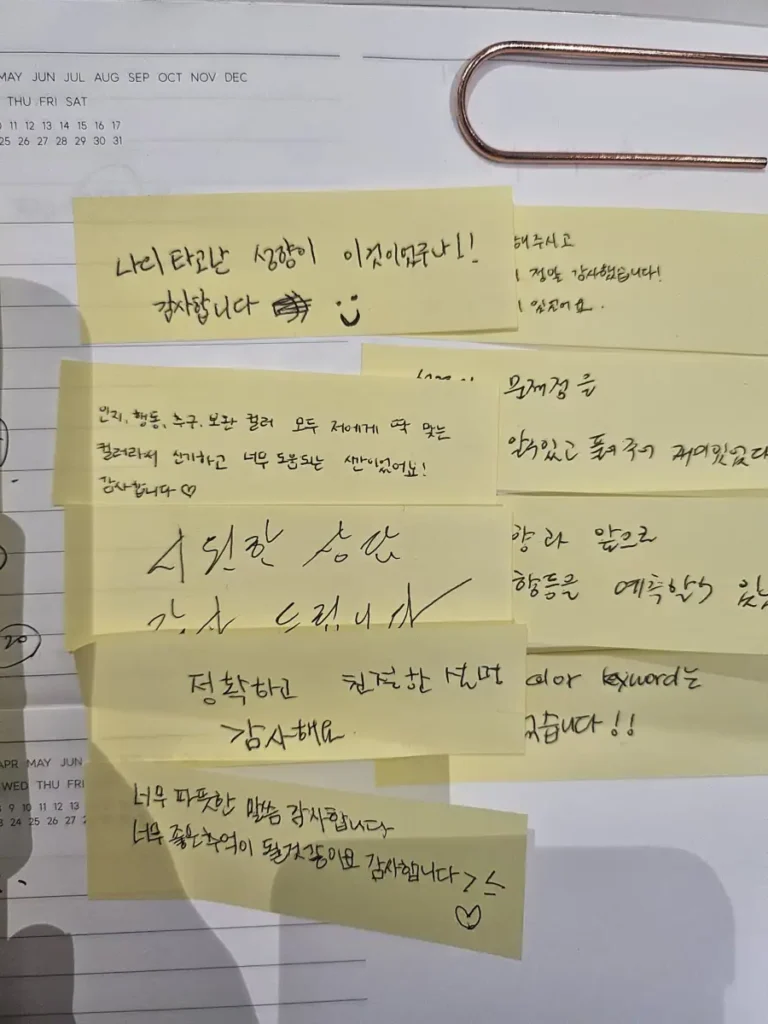 MAY JUN JUL AUG SEP OCT NOV DEC
THU FRI SAT
11 12 13 14 15 16 17
25 26 27 28 29 30 31
나의 타고난 성향이 이것이었구나!!
감사합니다
해주시고
정말 감사했습니다!
인지, 행동, 추구, 보완 컬러 모두 저에게 딱 맞는
컬러라서 신기하고 너무 도움되는 시간이었어요!
감사합니다♡
문제점을
알수있고 풀어주어 재미있었다
시원한 상담
감사 드립니다
향과 앞으로
행동을 예측할수
정확하고 친절한 설명
감사해요
color keyword는
습니다!!
너무 따뜻한 말씀 감사합니다
너무 좋은추억이 될것같아요 감사합니다
♡
20
APR MAY JUN
WED THU FRI
8 9 10 11 12 13
23 24 25 26